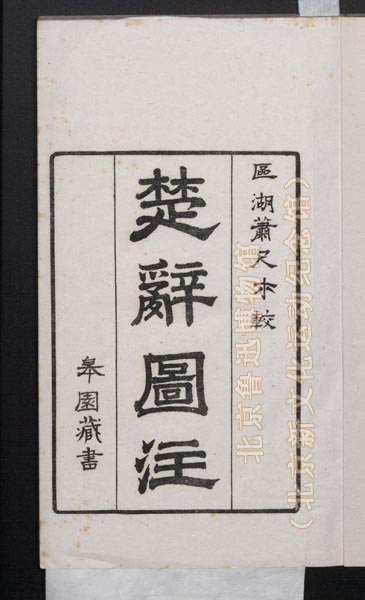 區湖蕭尺木較
楚辭圖注
皋園藏書
北京鲁迅博物馆
（北京新文化运动纪念馆）